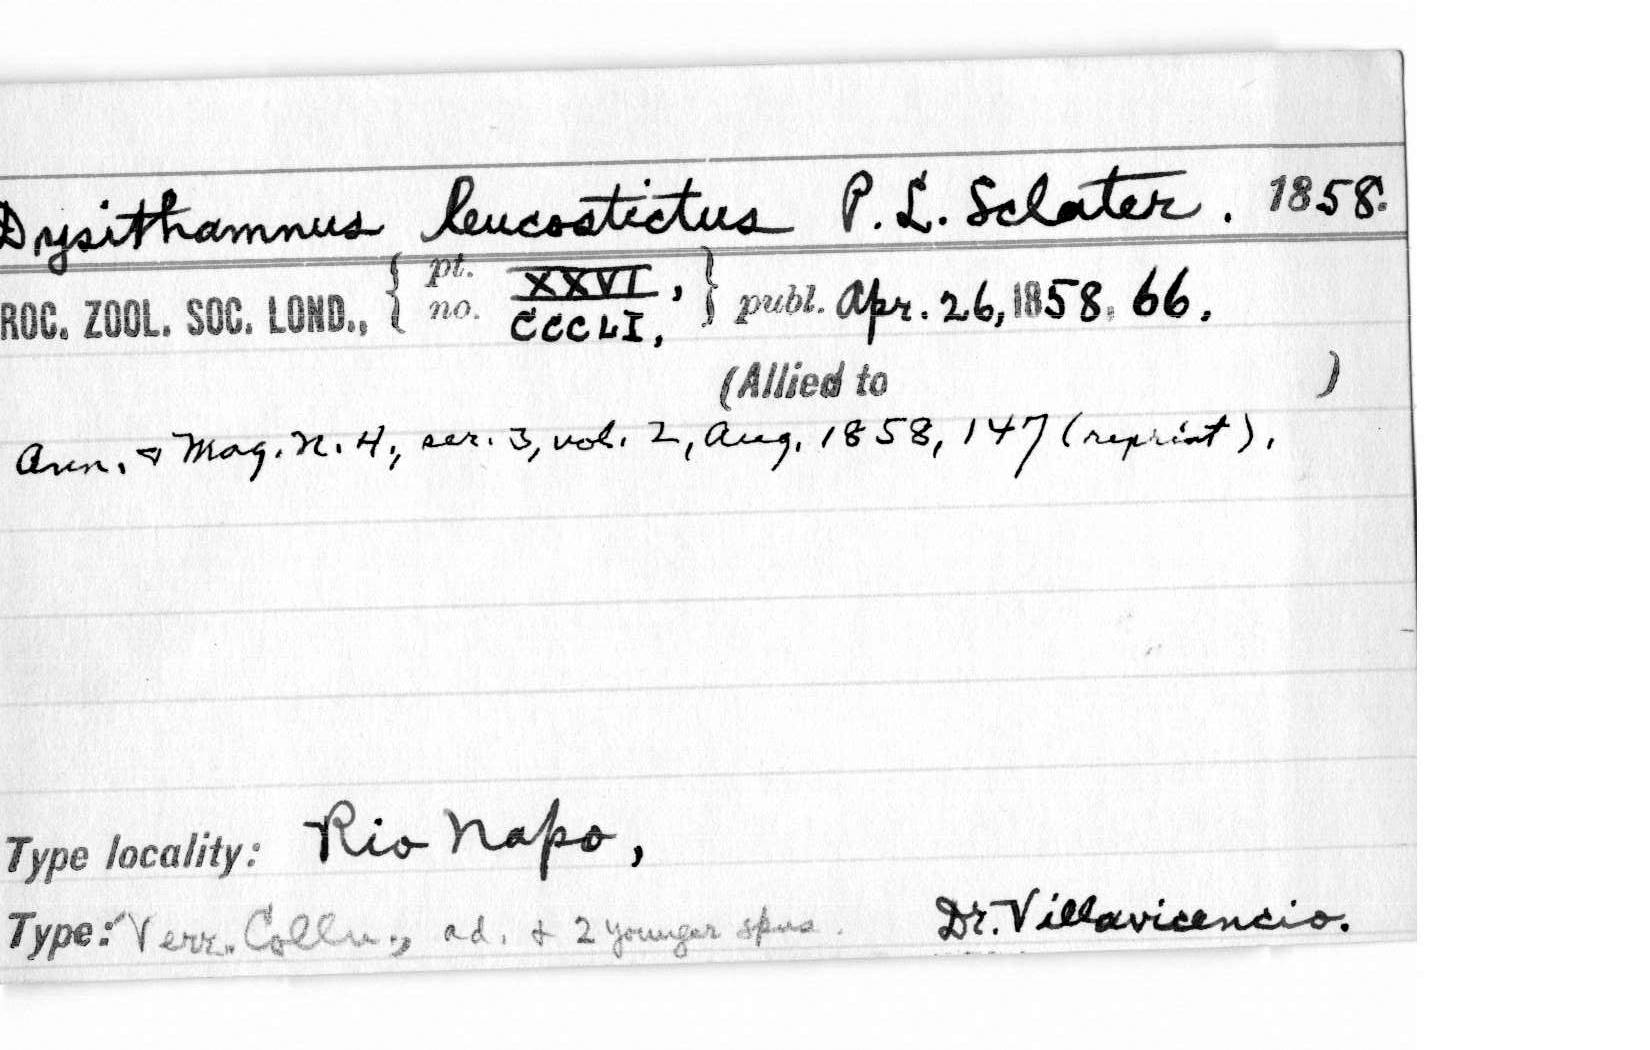 Dysithamnus leucostictus P. L. Sclater. 1858.
ROC. ZOOL. SOC. LOND., { pt. XXVI, } publ. Apr. 26, 1858. 66.
no. CCCLI,
(Allied to )
Ann. & Mag. N. H., ser. 3, vol. 2, Aug. 1858, 147 (reprint).
Type locality: Rio Napo,
Type: Verr. Colln., ad. & 2 younger spns. Dr. Villavicencio.